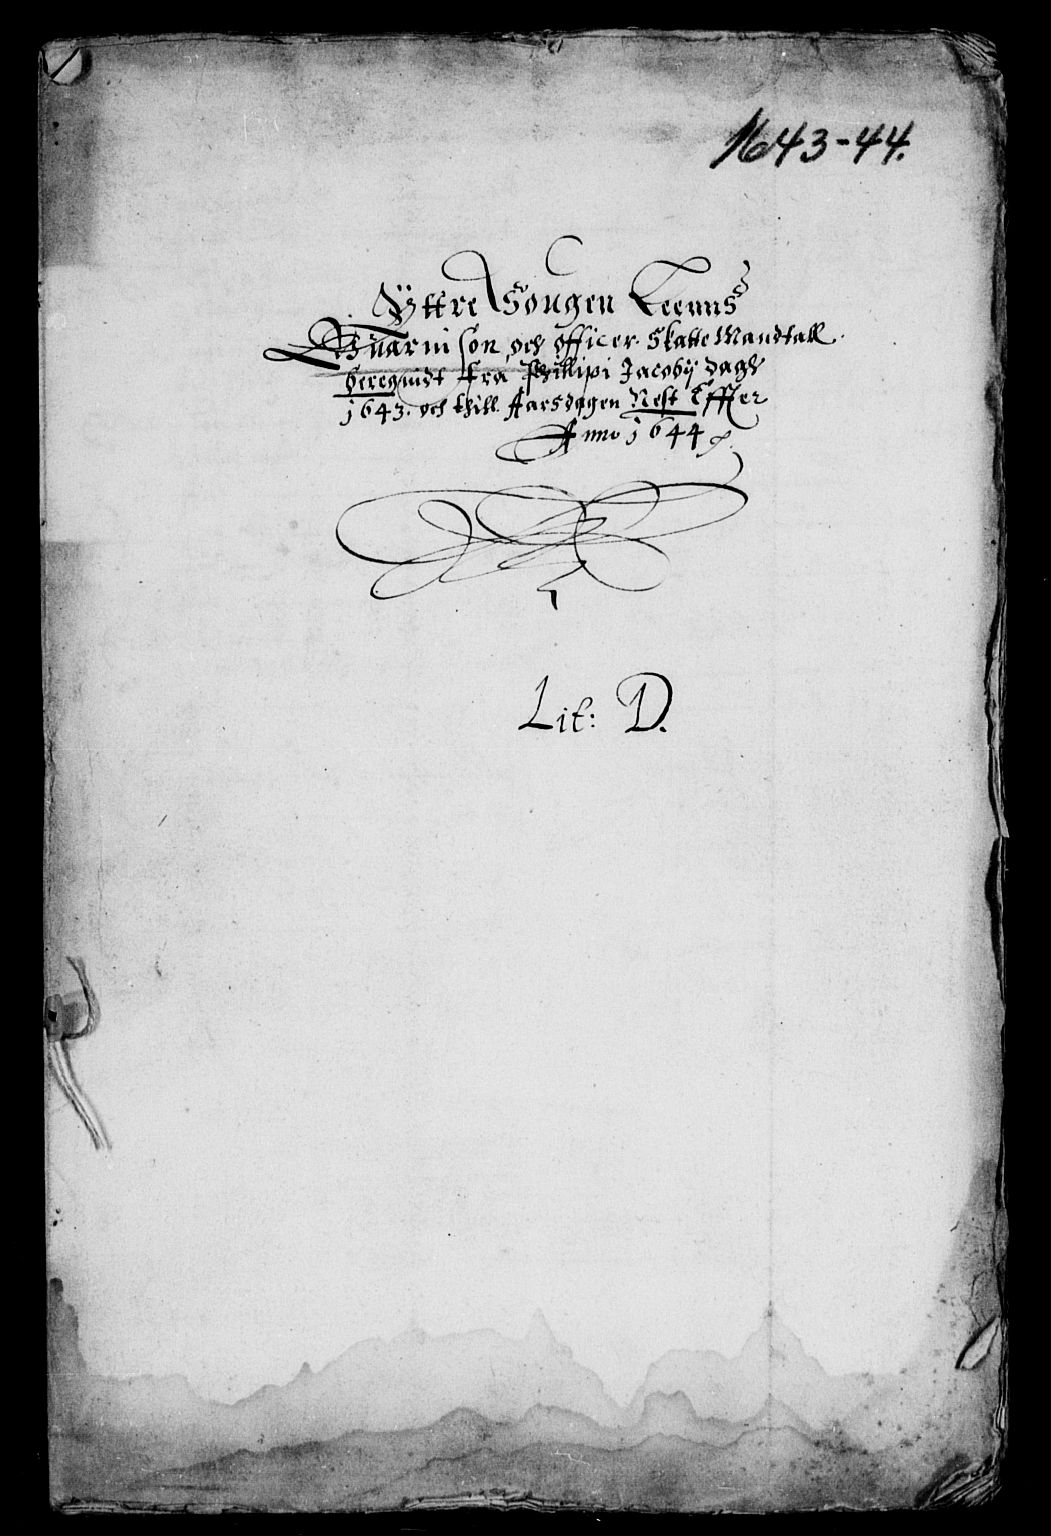 1643-44.
Yttre Sougen Leenns
Guarnison, och Officer Skatte Mandtall.
Beregnidt fra Phillipi Jacobij dagh
1643. och thill Aarsdagen Nest Effter
Anno 1644
Lit: D.